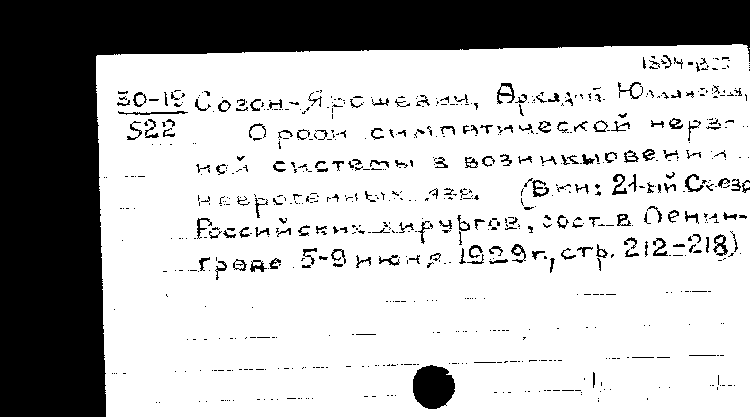 30-19 Созон-Ярошевич, Аркадий Юлианович,
522 О роли симпатической нерв-
ной системы в возникновении
неврогенных язв. (В кн: 21-ый Съезд
Российских хирургов, сост. в Ленин-
граде 5-9 июня 1929 г., стр. 212-218)